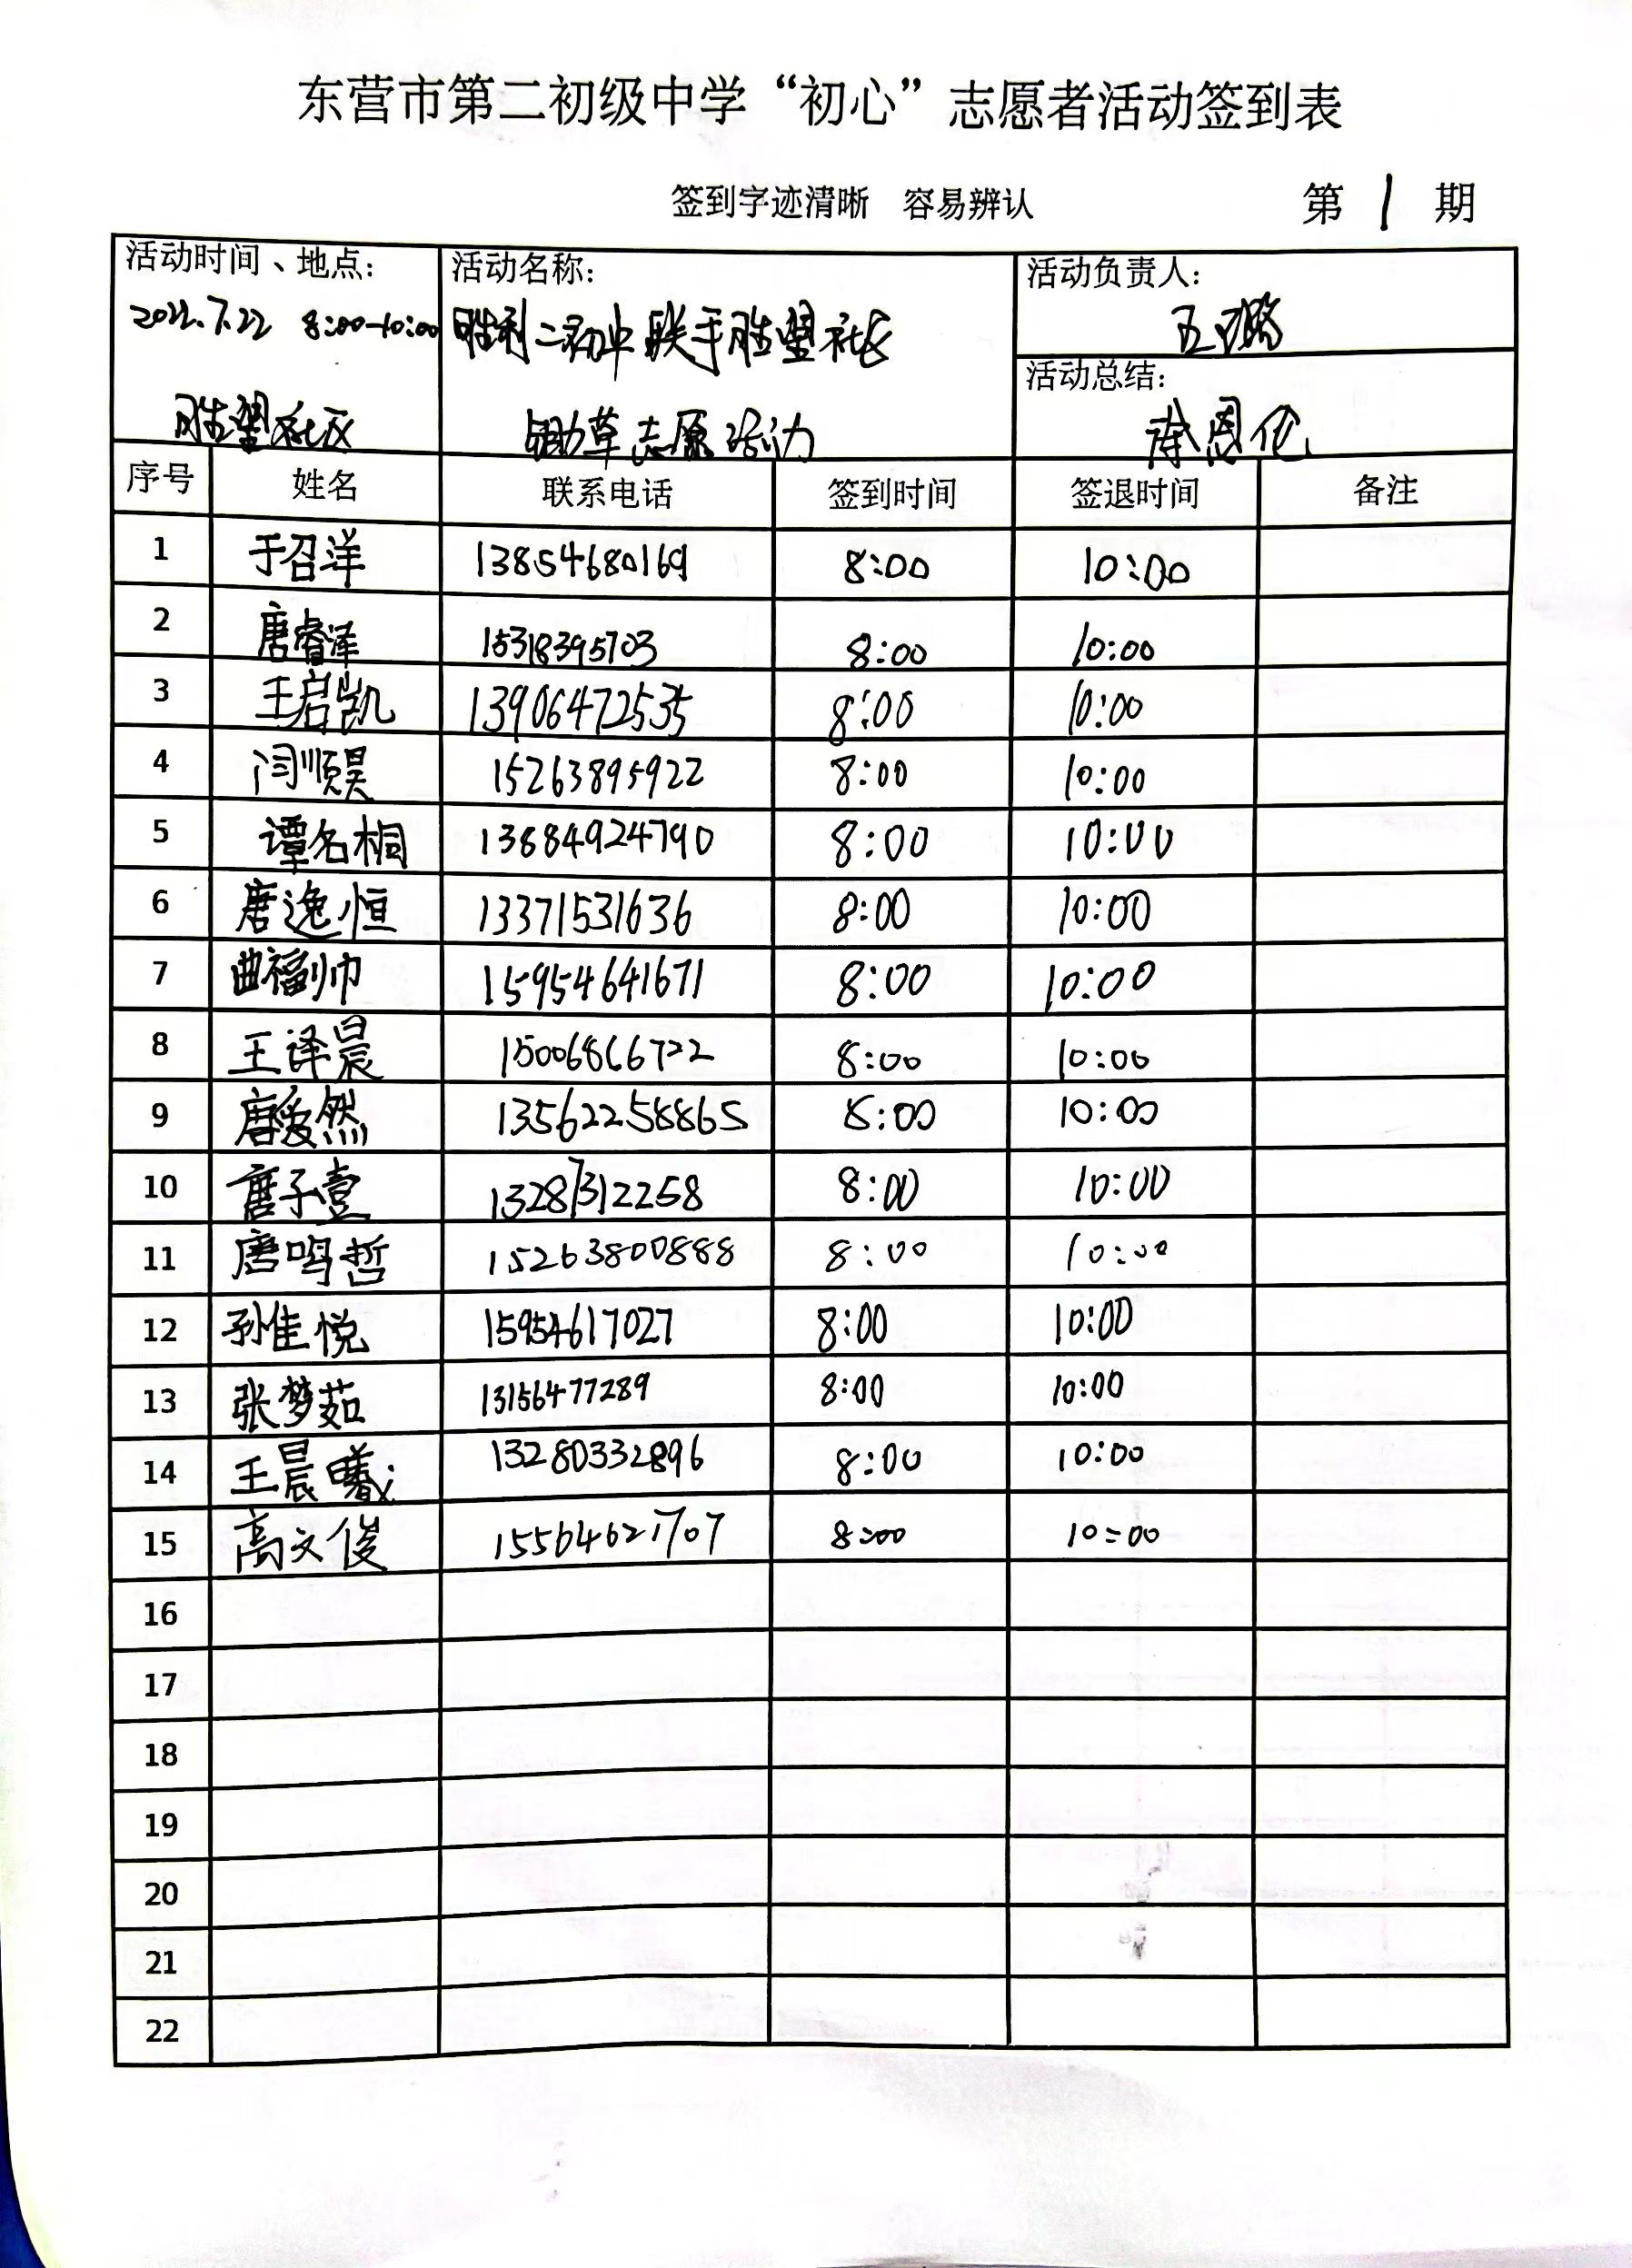 东营市第二初级中学“初心”志愿者活动签到表
签到字迹清晰 容易辨认 第 1 期
活动时间、地点: 活动名称: 活动负责人:
2022.7.22 8:00-10:00 胜利二初中联手胜望社区 王璐
活动总结:
胜望社区 锄草志愿活动
序号 姓名 联系电话 签到时间 签退时间 备注
1 于召洋 13854680169 8:00 10:00
2 唐睿泽 15318395703 8:00 10:00
3 王启凯 13906472535 8:00 10:00
4 闫顺昊 15263895922 8:00 10:00
5 谭名桐 13884924790 8:00 10:00
6 唐逸恒 13371531636 8:00 10:00
7 曲福帅 15954641671 8:00 10:00
8 王译晨 15006866722 8:00 10:00
9 唐爱然 13562258865 8:00 10:00
10 唐子壹 13287312258 8:00 10:00
11 唐鸣哲 15263800888 8:00 10:00
12 孙佳悦 15954617027 8:00 10:00
13 张梦茹 13156477289 8:00 10:00
14 王晨曦 13280332896 8:00 10:00
15 高文俊 15564621707 8:00 10:00
16
17
18
19
20
21
22